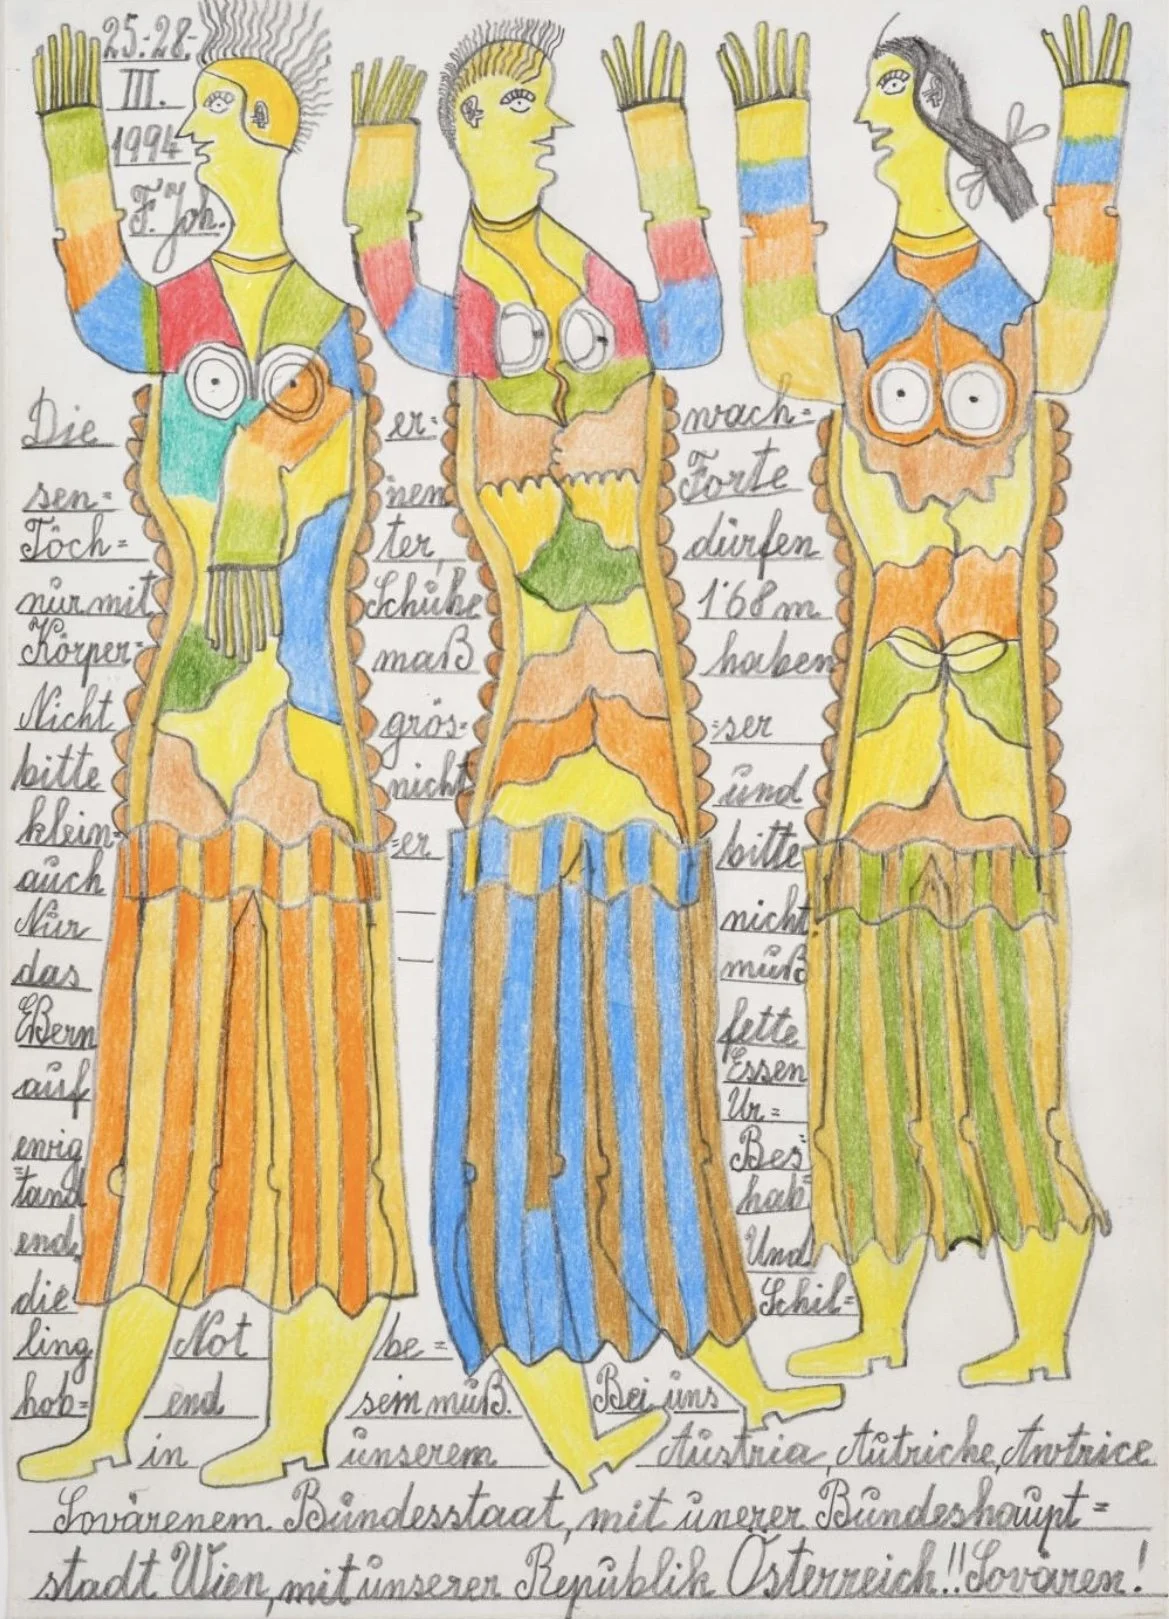 25.-28.
III.
1994
F. Joh.
Die er= wach=
sen= nen Forte
Töch= ter, dürfen
nur mit Schuhe 1'68 m
Körper= maß haben
Nicht grös= =ser
bitte nicht und
klein= =er bitte
auch
Nur nicht
das muß
Eßern fette
auf Essen
Ur=
ewig Bes=
=tand hab=
end. Und
die Schil=
ling Not be=
hob= end sein muß. Bei uns
in unserem Austria, Autriche, Autrice
Sovärenem Bundesstaat, mit unerer Bundeshaupt=
stadt Wien, mit unserer Republik Österreich!! Sovären!